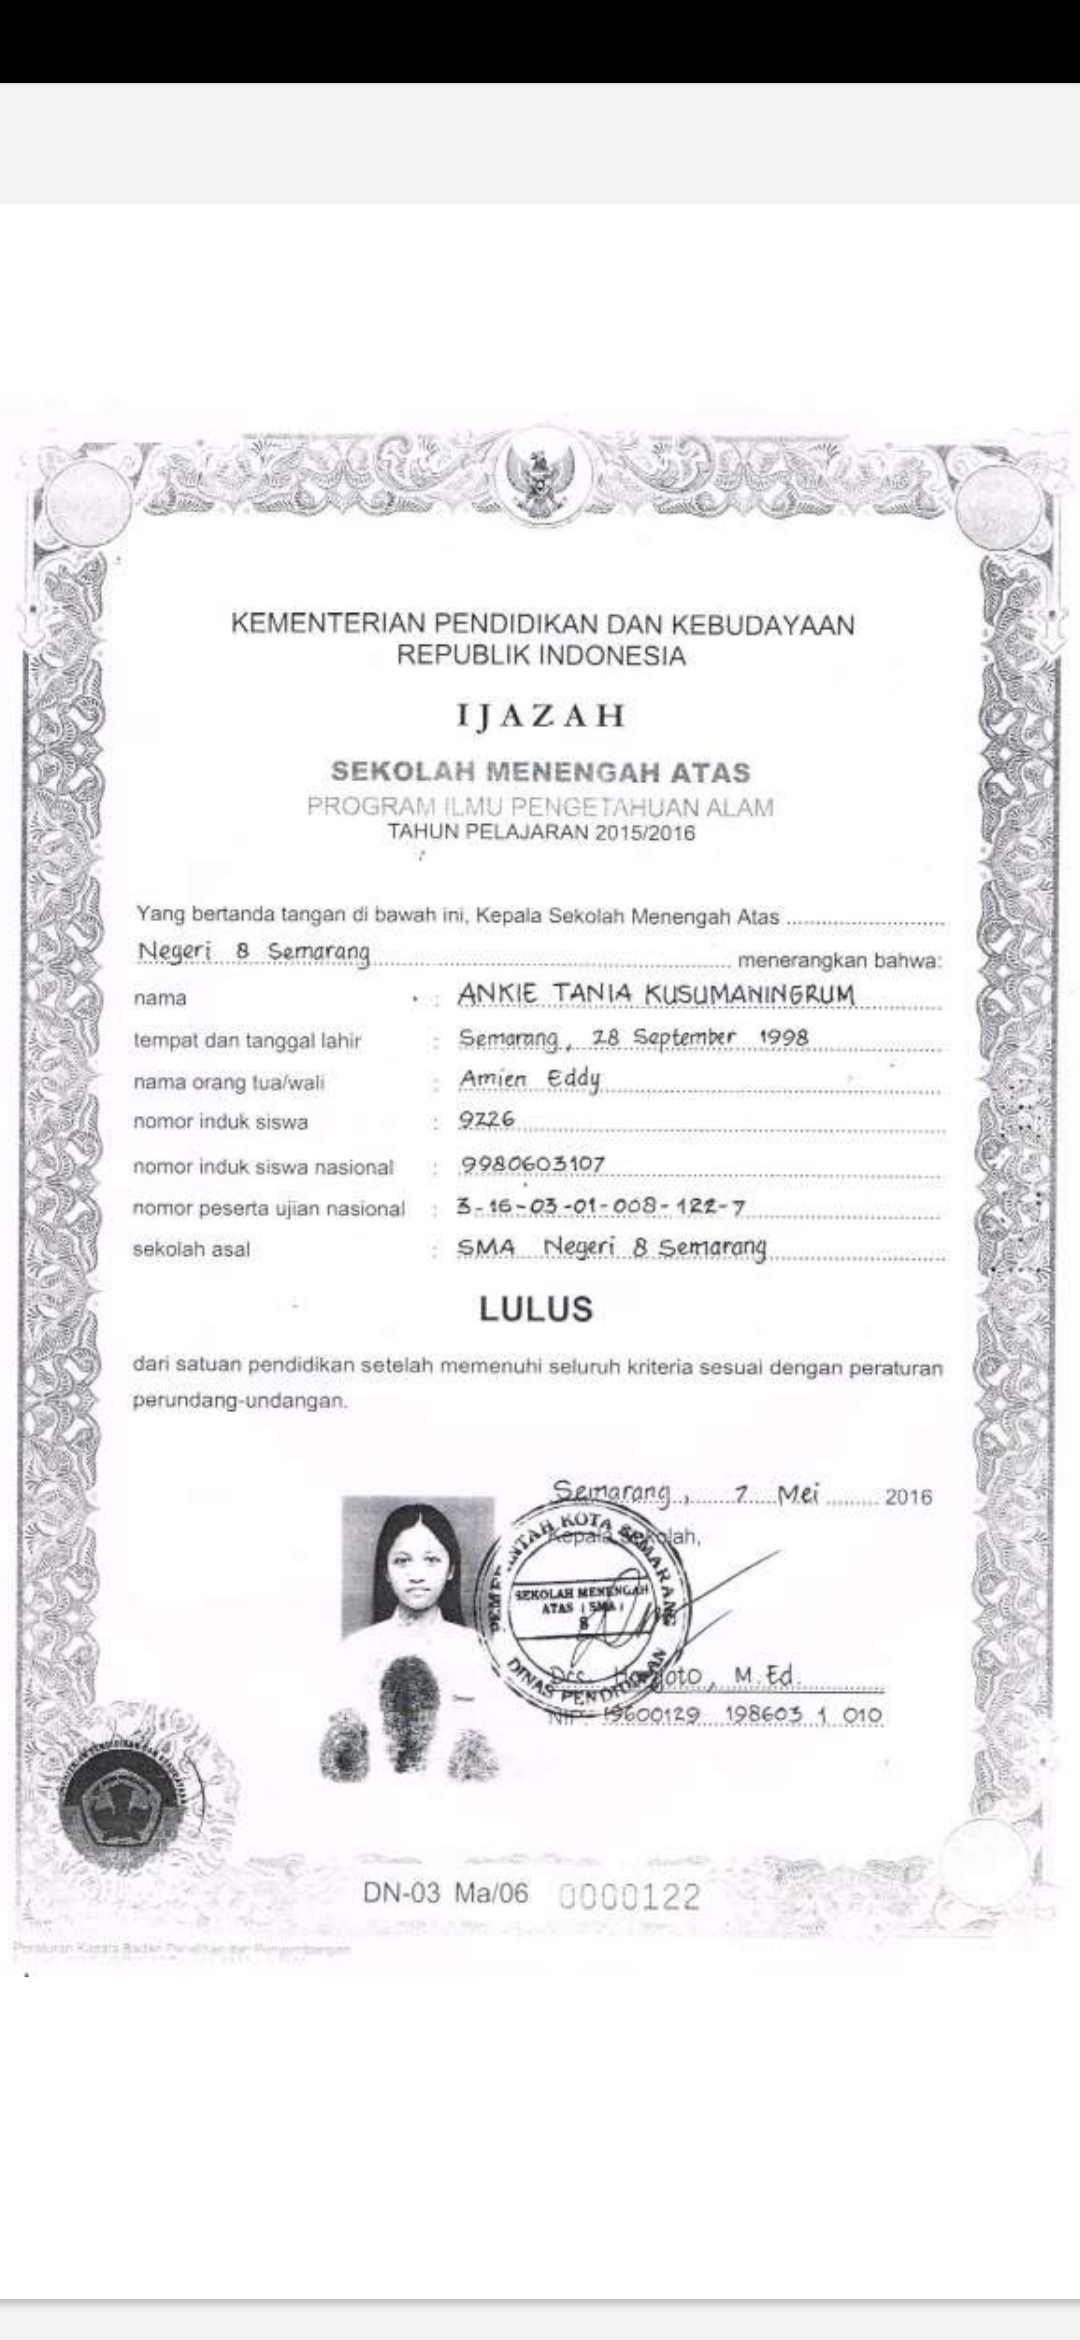 KEMENTERIAN PENDIDIKAN DAN KEBUDAYAAN
REPUBLIK INDONESIA
IJAZAH
SEKOLAH MENENGAH ATAS
PROGRAM ILMU PENGETAHUAN ALAM
TAHUN PELAJARAN 2015/2016
Yang bertanda tangan di bawah ini, Kepala Sekolah Menengah Atas
Negeri 8 Semarang menerangkan bahwa:
nama : ANKIE TANIA KUSUMANINGRUM
tempat dan tanggal lahir : Semarang, 28 September 1998
nama orang tua/wali : Amien Eddy
nomor induk siswa : 9226
nomor induk siswa nasional : 9980603107
nomor peserta ujian nasional : 3-16-03-01-008-122-7
sekolah asal : SMA Negeri 8 Semarang
LULUS
dari satuan pendidikan setelah memenuhi seluruh kriteria sesuai dengan peraturan
perundang-undangan.
Semarang, 7 Mei 2016
Kepala Sekolah,
PEMERINTAH KOTA SEMARANG
SEKOLAH MENENGAH
ATAS (SMA)
8
DINAS PENDIDIKAN
M.Ed.
NIP. 19600129 198603 1 010
DN-03 Ma/06 0000122
Peraturan Kepala Badan Penelitian dan Pengembangan